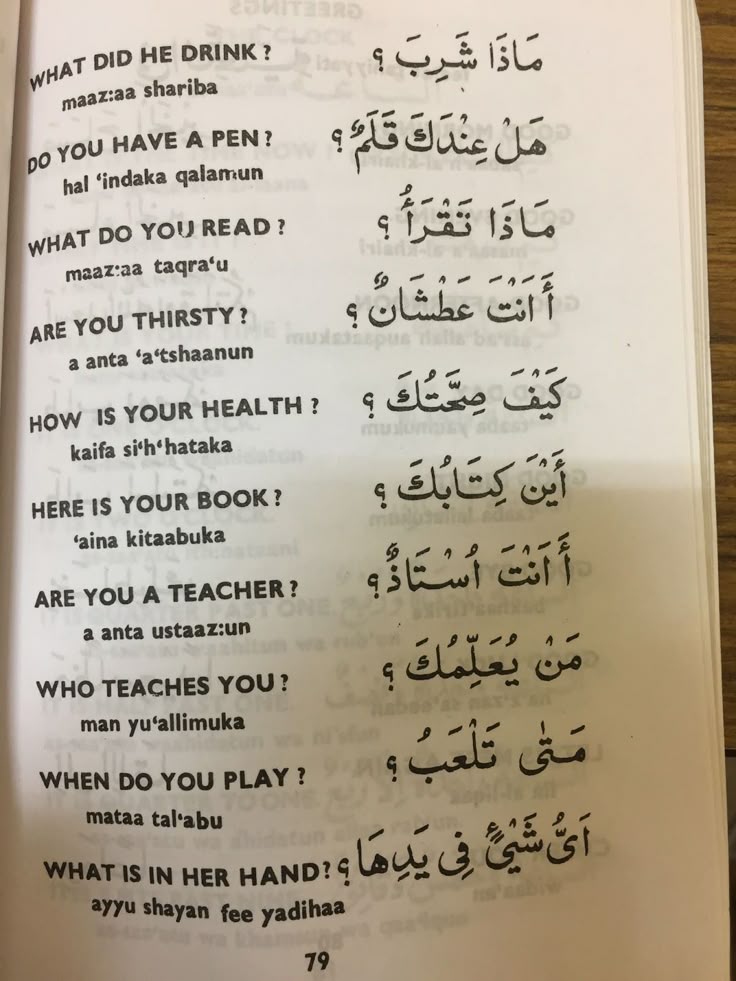 WHAT DID HE DRINK ? مَاذَا شَرِبَ ؟
maaz:aa shariba
DO YOU HAVE A PEN ? هَلْ عِنْدَكَ قَلَمٌ ؟
hal ‘indaka qalamun
WHAT DO YOU READ ? مَاذَا تَقْرَأُ ؟
maaz:aa taqra‘u
ARE YOU THIRSTY ? أَ اَنْتَ عَطْشَانٌ ؟
a anta ‘a‘tshaanun
HOW IS YOUR HEALTH ? كَيْفَ صِحَّتُكَ ؟
kaifa si‘h‘hataka
HERE IS YOUR BOOK ? أَيْنَ كِتَابُكَ ؟
‘aina kitaabuka
ARE YOU A TEACHER ? أَ اَنْتَ اُسْتَاذٌ ؟
a anta ustaaz:un
WHO TEACHES YOU ? مَنْ يُعَلِّمُكَ ؟
man yu‘allimuka
WHEN DO YOU PLAY ? مَتٰى تَلْعَبُ ؟
mataa tal‘abu
WHAT IS IN HER HAND ? اَىُّ شَيْئٍ فِى يَدِهَا ؟
ayyu shayan fee yadihaa
79